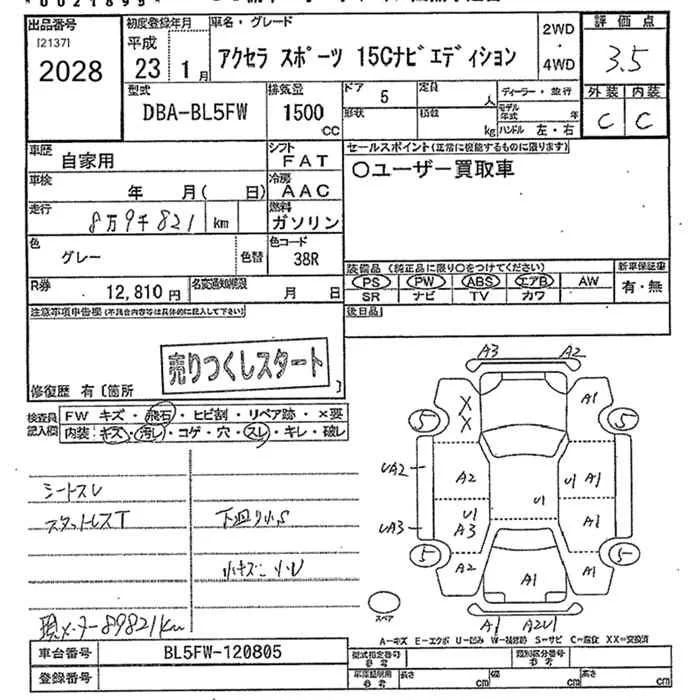 *0021895*
出品番号
[2137]
2028
初度登録年月
平成
23 1月
車名・グレード
アクセラ スポーツ 15Cナビエディション
2WD
・
4WD
評価点
3.5
外装 内装
C C
型式
DBA-BL5FW
排気量
1500
CC
ドア 5
形状
定員 人
積数 kg
ディーラー・並行
モデル年式 年
ハンドル 左・右
車歴
自家用
シフト
FAT
セールスポイント(正常に機能するものに限ります)
○ユーザー買取車
車検
年 月( 日)
冷房
AAC
走行
8万9千821 km
燃料
ガソリン
色
グレー
色替
色コード
38R
装備品 (純正品に限り○をつけてください)
新車保証書
PS PW ABS エアB AW
SR ナビ TV カワ
有・無
R券
12,810円
名変通知期限
月 日
後日品
注意事項申告欄(不具合内容等は具体的に記入して下さい)
売りつくしスタート
修復歴 有〔箇所 〕
検査員記入欄
FW キズ・飛石・ヒビ割・リペア跡・×要
内装:キズ・汚レ・コゲ・穴・スレ・キレ・破レ
シートスレ
スタットレスT
下廻り小S
小キズ 小U
現メーター89821km
A3 A2
X
X
A1
5 5
UA2
A2
U1
A1
U1
UA3
U1
A3
A1
5 5
A2
A1
A1
A1 A2U1
スペア
A-キズ E-エクボ U-凹み W-補修跡 S-サビ C-腐食 XX-交換済
車台番号
BL5FW-120805
登録番号
型式指定番号
参考
類別区分番号
参考
車庫証明用
参考
長さ cm
幅 cm
高さ cm